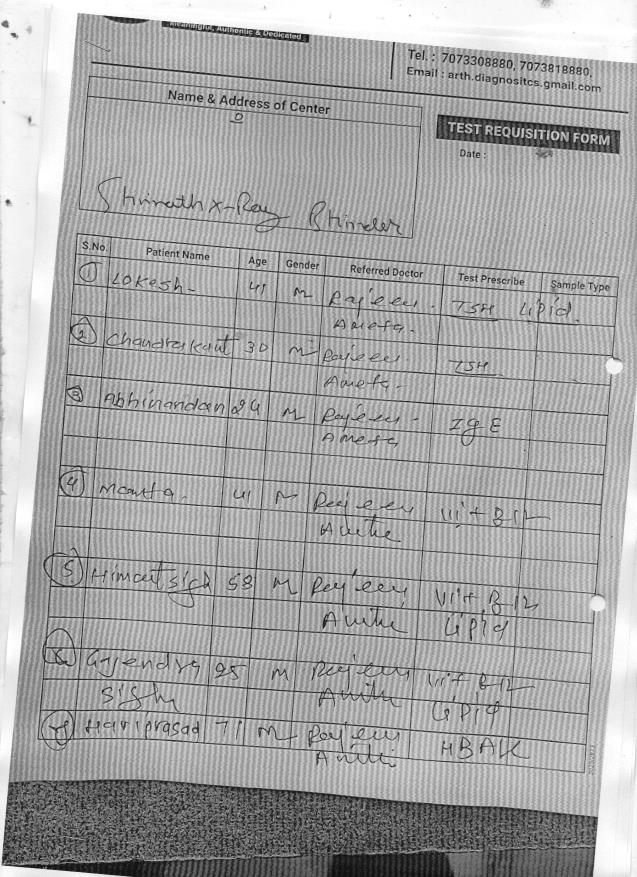 Meaningful, Authentic & Dedicated
Tel. : 7073308880, 7073818880,
Email : arth.diagnositcs.gmail.com
Name & Address of Center
TEST REQUISITION FORM
Date :
Shrinath X-Ray Bhinder
S.No. Patient Name Age Gender Referred Doctor Test Prescribe Sample Type
1 Lokesh - 41 M Rajeev - TSH Lipid.
Ameta.
2 Chandrakant 30 M Rajeev TSH
Ameta.
3 Abhinandan 24 M Rajeev - IgE
Ameta
4 41 M Rajeev Vit B12
5 Himmat sigh 58 M Rajeev Vit B12
Lipid
Gajendra 25 M Rajeev Vit B12
sigh Lipid
Hariprasad 71 M Rajeev